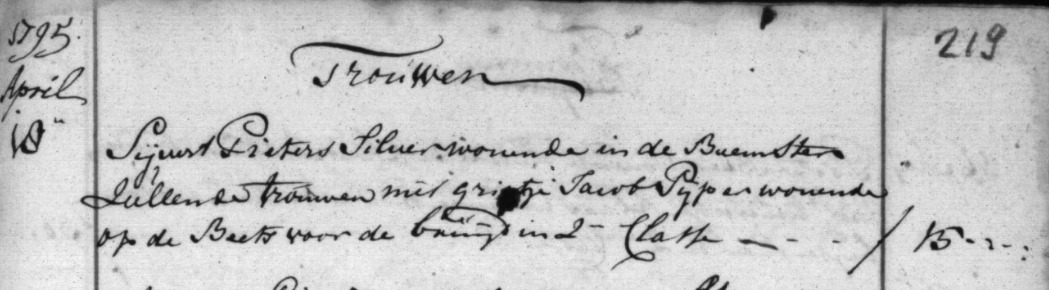 1795. 219
Trouwen
April
18en Sijvert Pieters Silver wonende in de Beemster
Zullende trouwen met grietje Jacob Pijper wonende
op de Beets voor de bruijd in 2- Classe — - - / 15 - - -